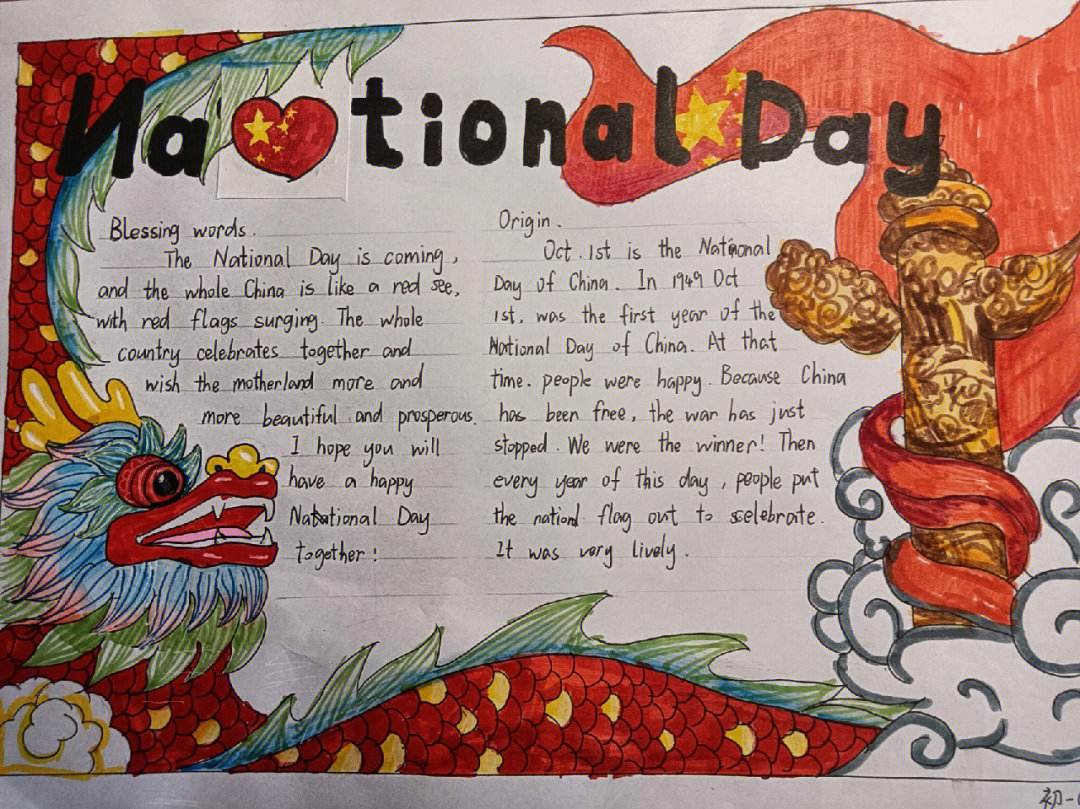 National Day
Blessing words.
The National Day is coming,
and the whole China is like a red see,
with red flags surging. The whole
country celebrates together and
wish the motherland more and
more beautiful and prosperous.
I hope you will
have a happy
National Day
together!
Origin.
Oct. 1st is the National
Day of China. In 1949 Oct
1st. was the first year of the
National Day of China. At that
time. people were happy. Because China
has been free, the war has just
stopped. We were the winner! Then
every year of this day, people put
the national flag out to celebrate.
It was very lively.
初一